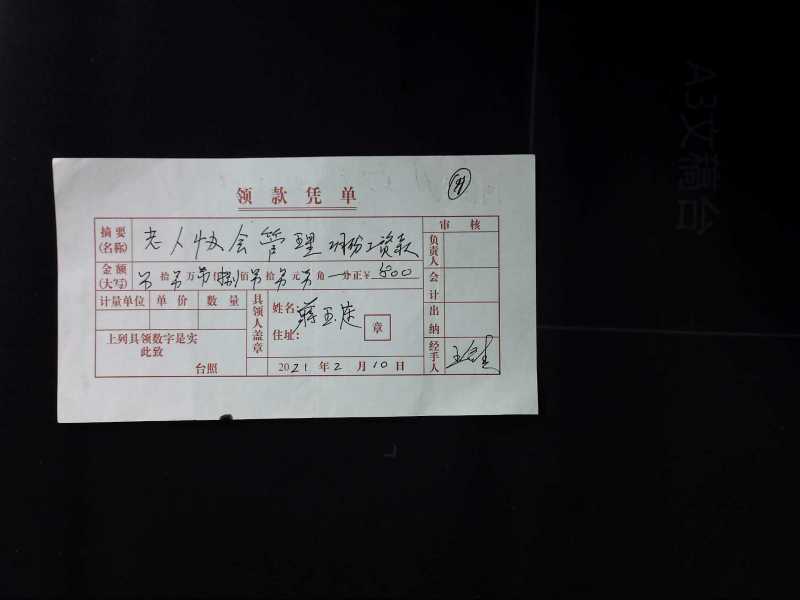 领款凭单
摘要(名称) 老人协会管理 工资款
审核
负责人
金额(大写) 拾 万 仟 捌 佰 拾 元 角 分正¥ 800
会计
计量单位 单价 数量
具领人盖章
姓名: 蒋玉
住址:
章
出纳
上列具领数字是实
此致
台照
2021年2月10日
经手人 王
A3文稿台